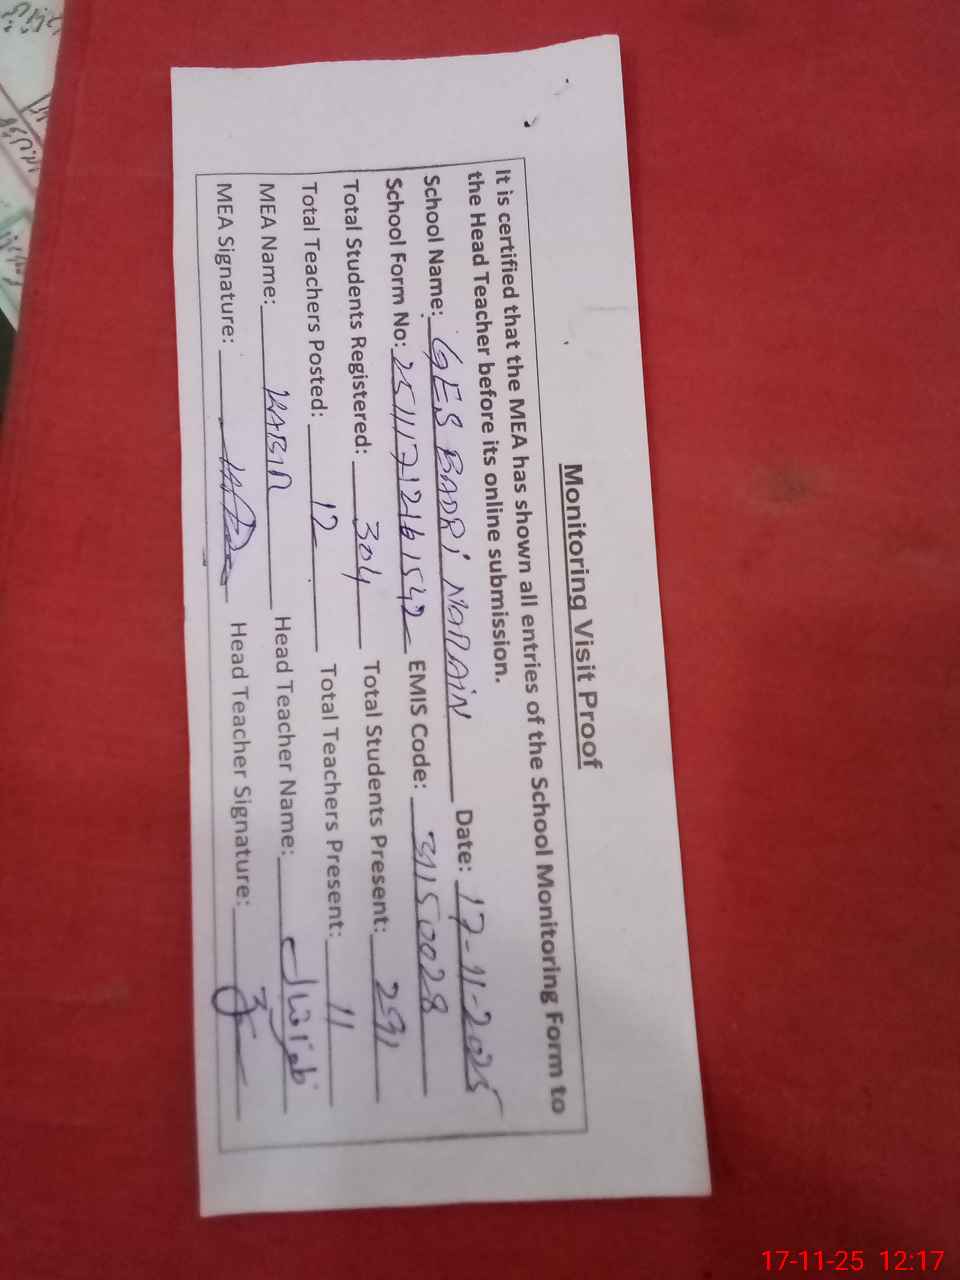 Monitoring Visit Proof
It is certified that the MEA has shown all entries of the School Monitoring Form to
the Head Teacher before its online submission.
School Name: GES BADRi NARAiN Date: 17-11-2025
School Form No: 25111712161542 EMIS Code: 31150028
Total Students Registered: 304 Total Students Present: 291
Total Teachers Posted: 12 Total Teachers Present: 11
MEA Name: KABIR Head Teacher Name:
MEA Signature: Head Teacher Signature:
17-11-25 12:17